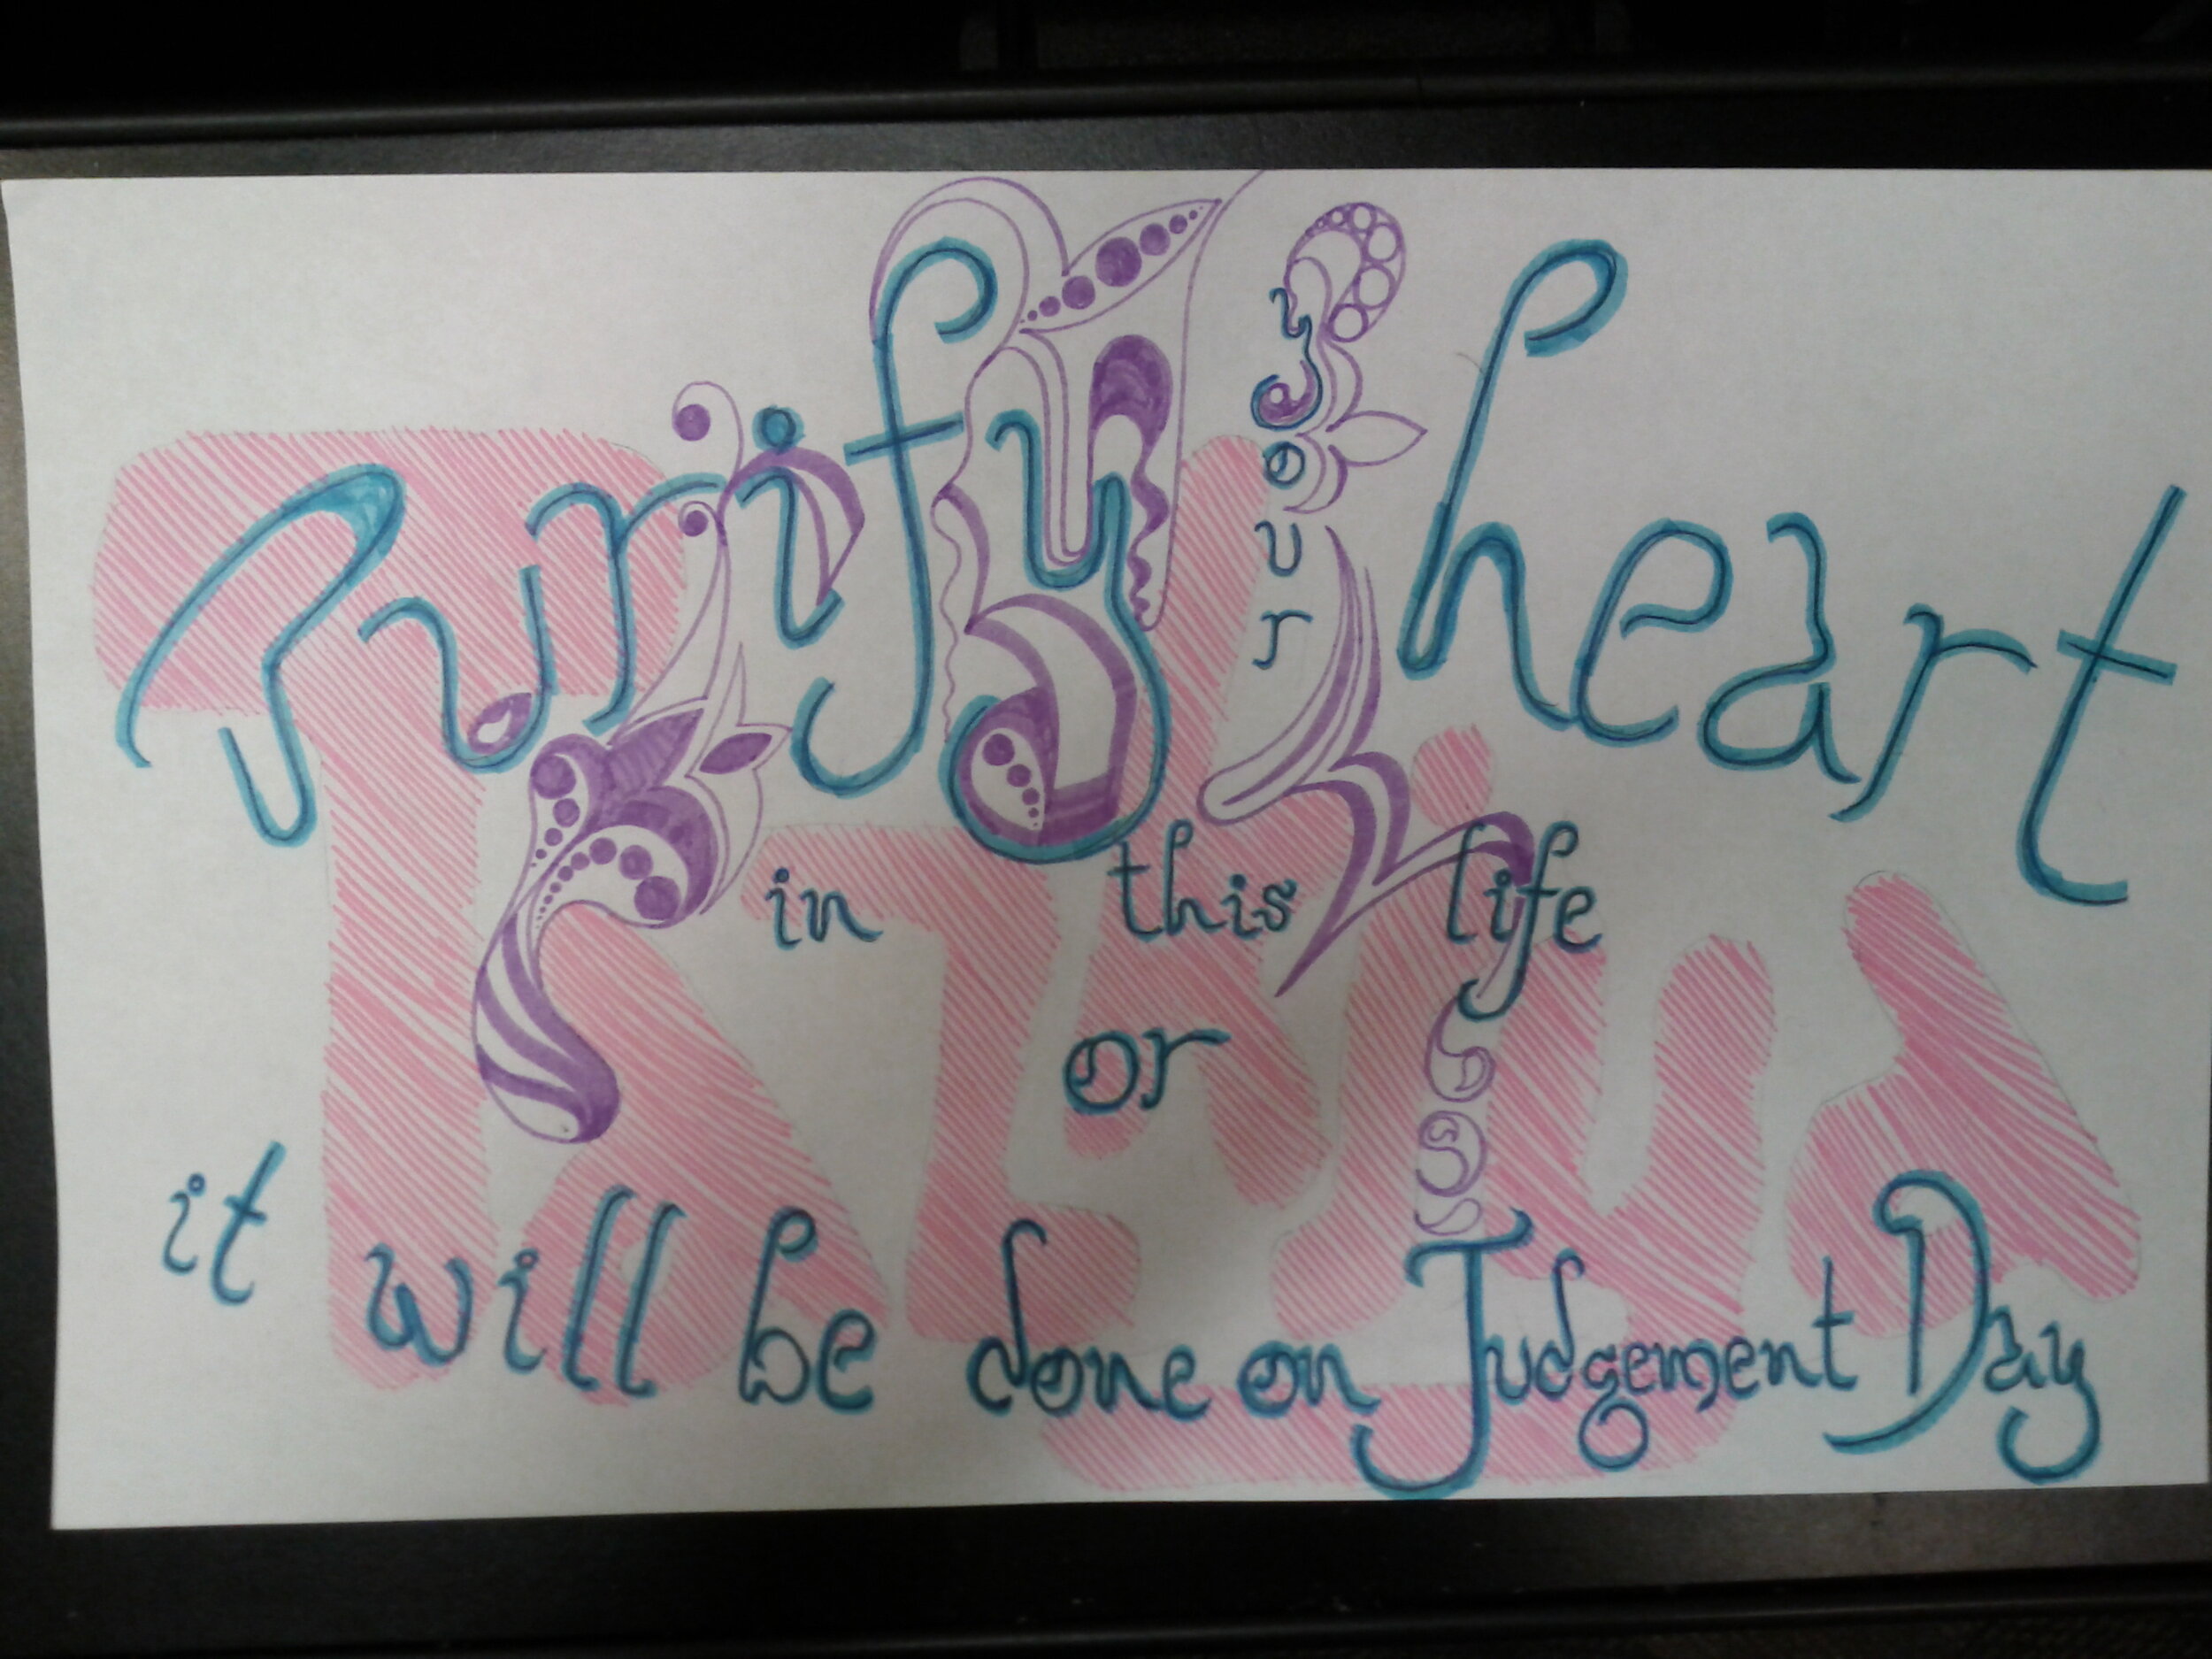 Purify your heart
in this life
or
it will be done on Judgement Day